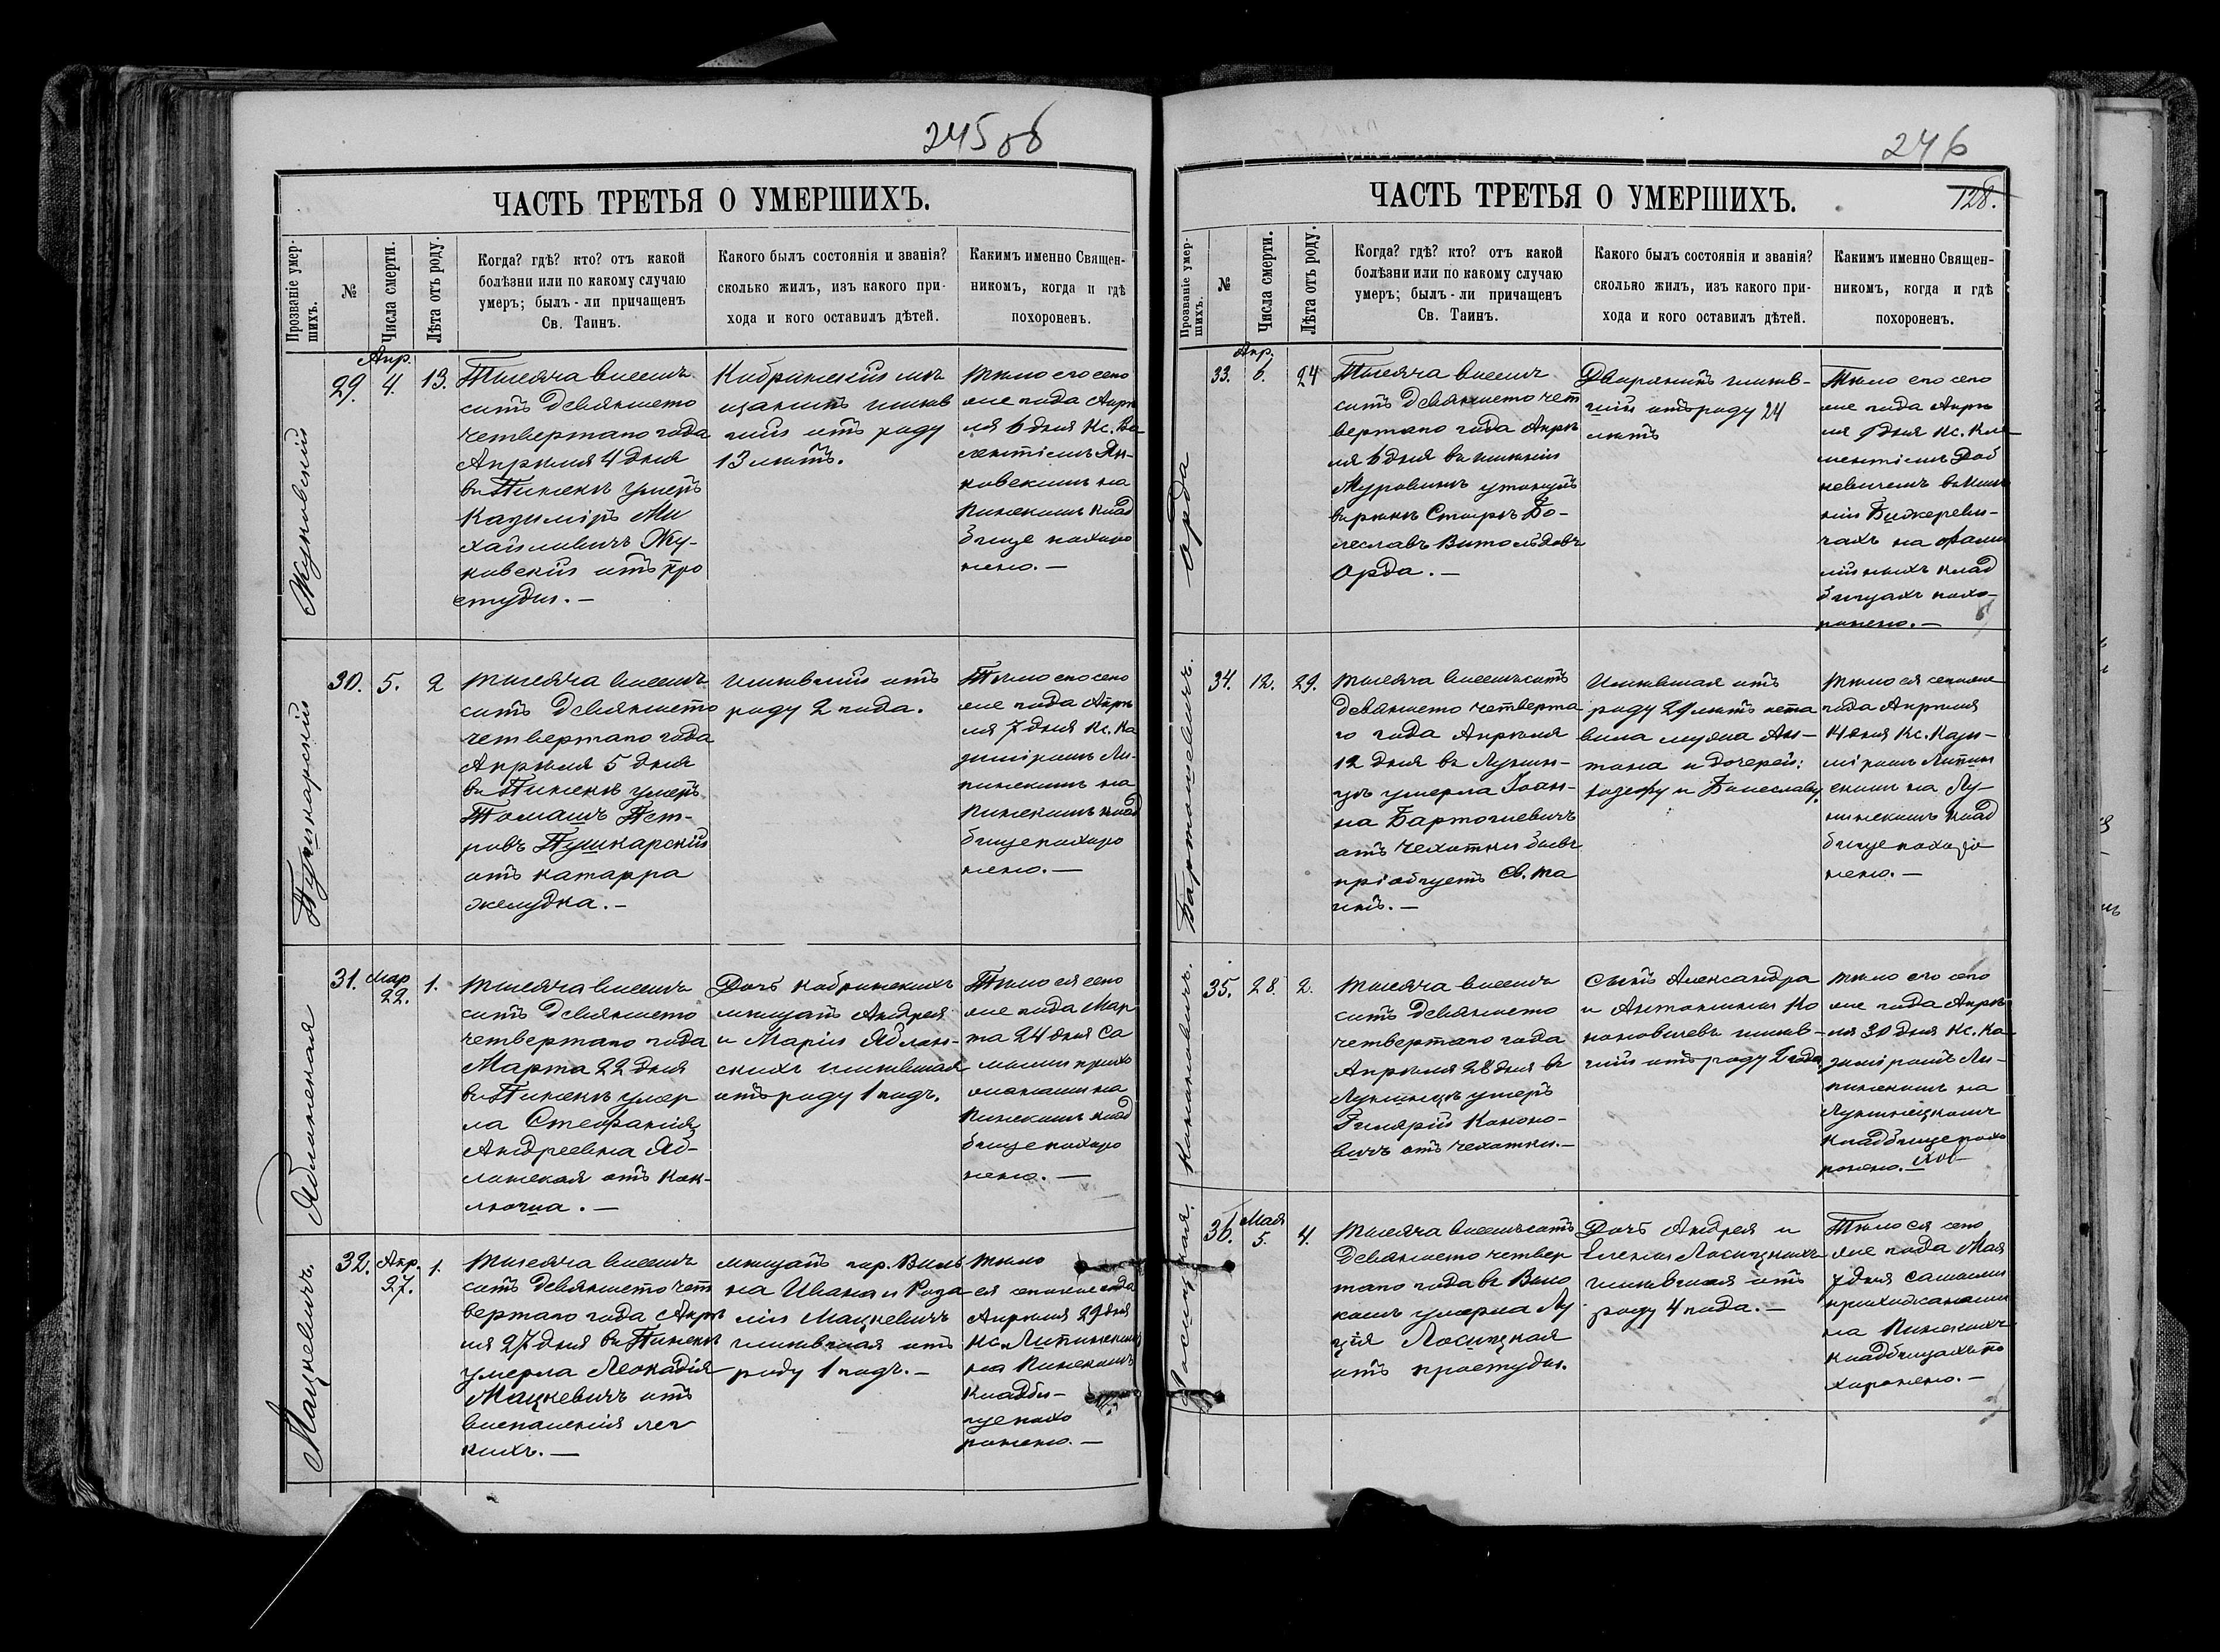 245 об
ЧАСТЬ ТРЕТЬЯ О УМЕРШИХЪ.
Прозваніе умер-
шихъ.
№
Числа смерти.
Лѣта отъ роду.
Когда? гдѣ? кто? отъ какой
болѣзни или по какому случаю
умеръ; былъ-ли причащенъ
Св. Таинъ.
Какого былъ состоянія и званія?
сколько жилъ, изъ какого при-
хода и кого оставилъ дѣтей.
Какимъ именно Священ-
никомъ, когда и гдѣ
похороненъ.
Жуковскій
29.
Апр.
4.
13.
Тысяча восемь
сотъ девяносто
четвертаго года
Апрѣля 4 дня
въ Пинскѣ умеръ
Казиміръ Ми
хайловичъ Жу-
ковскій отъ про
студы. —
Кобринскій мѣ
щанинъ жив
шій отъ роду
13 лѣтъ.
Тѣло его сего
же года Апрѣ
ля 6 дня Кс.
Пинскомъ клад
бище похоро
нено. —
Пушкарскій
30.
5.
2
Тысяча восемь
сотъ девяносто
четвертаго года
Апрѣля 5 дня
въ Пинскѣ умеръ
Томашъ Пет-
ровъ Пушкарскій
отъ катарра
желудка. —
Жившій отъ
роду 2 года.
Тѣло его сего
же года Апрѣ
ля 7 дня Кс. Ка
зиміромъ Ли-
пинскимъ на
Пинскомъ клад
бище похоро
нено. —
Яблонская
31.
Мар
22.
1.
Тысяча восемь
сотъ девяносто
четвертаго года
Марта 22 дня
въ Пинскѣ умер
ла Стефанія
Андреевна Яб-
лонская отъ кок-
люша. —
Дочь кобринскихъ
мѣщанъ Андрея
и Маріи Яблон-
скихъ жившая
отъ роду 1 годъ.
Тѣло ея сего
же года Мар
та 24 дня са
мыми прихо
жанами на
Пинскомъ клад
бище похоро
нено. —
Мацкевичъ.
32.
Апр.
27.
1.
Тысяча восемь
сотъ девяносто чет
вертаго года Апрѣ
ля 27 дня въ Пинскѣ
умерла Леокадія
Мацкевичъ отъ
воспаленія лег
кихъ. —
мѣщанъ гор. Виль
на Ивана и Роза
ліи Мацкевичъ
жившая отъ
роду 1 годъ. —
Тѣло
ея сего же года
Апрѣля 29 дня
Кс. Липинскимъ
на Пинскомъ
Кладби-
ще похо
ронено. —
246
128.
ЧАСТЬ ТРЕТЬЯ О УМЕРШИХЪ.
Прозваніе умер-
шихъ.
№
Числа смерти.
Лѣта отъ роду.
Когда? гдѣ? кто? отъ какой
болѣзни или по какому случаю
умеръ; былъ-ли причащенъ
Св. Таинъ.
Какого былъ состоянія и званія?
сколько жилъ, изъ какого при-
хода и кого оставилъ дѣтей.
Какимъ именно Священ-
никомъ, когда и гдѣ
похороненъ.
Орда
33.
Апр.
6.
24
Тысяча восемь
сотъ девяносто чет
вертаго года Апрѣ
ля 6 дня въ имѣніи
Муровинъ утонулъ
въ рѣкѣ Стырѣ Бо-
леславъ Витольдовъ
Орда. —
Дворянинъ жив-
шій отъ роду 24
лѣтъ
Тѣло его сего
же года Апрѣ
ля 9 дня Кс.
невичемъ въ имѣ
ніи
чахъ на фами
лійныхъ клад
бищахъ похо-
ронено. —
Бартошевичъ.
34.
12.
29.
Тысяча восемьсотъ
девяносто четверта
го года Апрѣля
12 дня въ Лунин-
цѣ умерла Іоан-
на Бартошевичъ
отъ чахотки бывъ
пріобщенъ Св. Та
инъ. —
Жившая отъ
роду 29 лѣтъ оста
вила мужа Ан-
тона и дочерей:
Іозефу и Болеславу.
Тѣло ея сего же
года Апрѣля
14 дня Кс. Кази-
міромъ Липин
скимъ на Лу-
нинскомъ клад
бище похоро
нено. —
Кононовичъ.
35.
28.
2.
Тысяча восемь
сотъ девяносто
четвертаго года
Апрѣля 28 дня въ
Лунинцѣ умеръ
Гиляріи Кононо-
вичъ отъ чахотки. —
Сынъ Александра
и Антонины Ко
ноновичевъ жив-
шій отъ роду 2 года
Тѣло его сего
же года Апрѣ
ля 30 дня Кс. Ка
зиміромъ Ли-
пинскимъ на
Лунинецкомъ
кладбище похо
ронено. —
Лосицкая.
36.
Мая
5.
4.
Тысяча восемьсотъ
девяносто четвер
таго года въ
умерла Лу
ція Лосицкая
отъ простуды.
Дочь Андрея и
Елены Лосицкихъ
жившая отъ
роду 4 года. —
Тѣло ея сего
же года Мая
7 дня самыми
прихожанами
на Пинскихъ
кладбищахъ по
хоронено. —